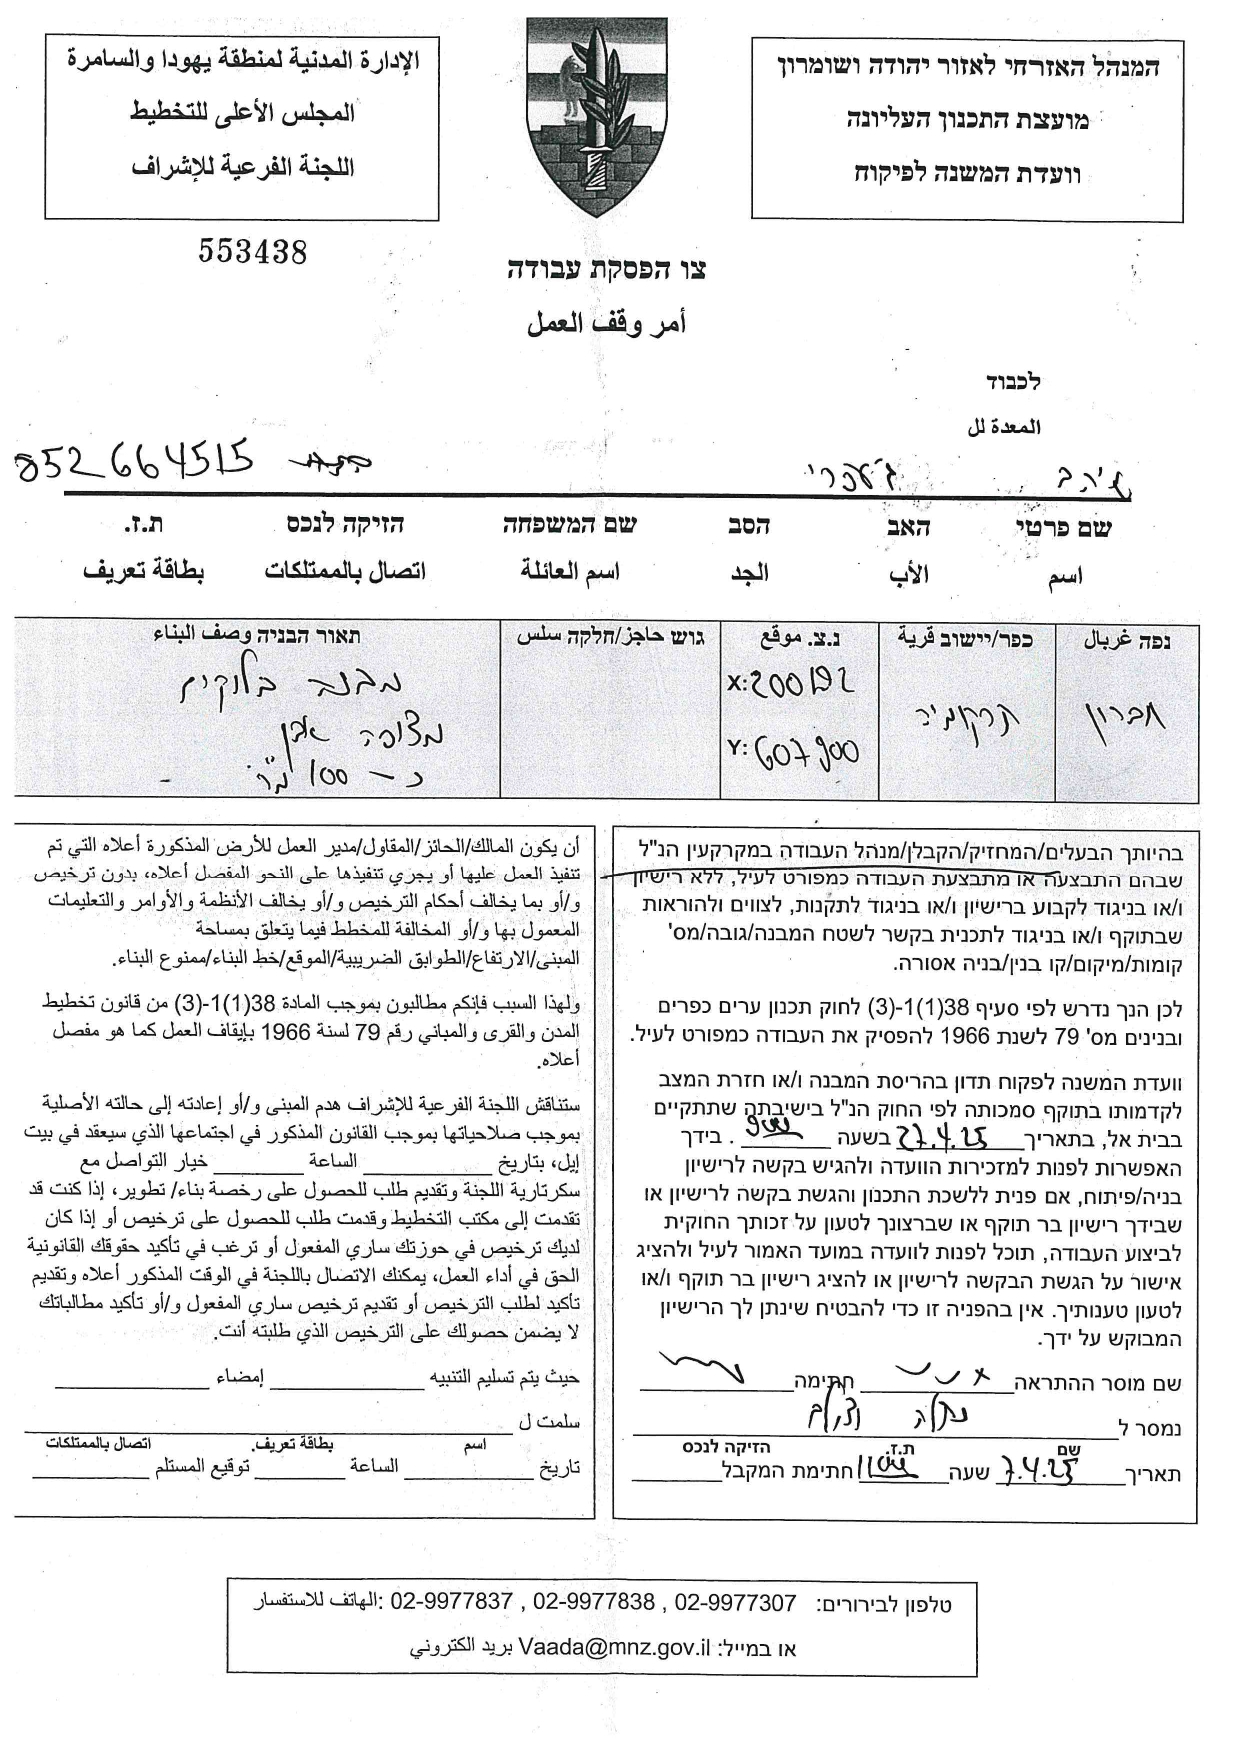 המנהל האזרחי לאזור יהודה ושומרון
מועצת התכנון העליונה
וועדת המשנה לפיקוח
الإدارة المدنية لمنطقة يهودا والسامرة
المجلس الأعلى للتخطيط
اللجنة الفرعية للإشراف
553438
צו הפסקת עבודה
أمر وقف العمل
לכבוד
المعدة لل
ג'עפרי 852664515
שם פרטי האב הסב שם המשפחה הזיקה לנכס ת.ז.
اسم الأب الجد اسم العائلة اتصال بالممتلكات بطاقة تعريف
נפה غربال כפר/יישוב قرية נ.צ. موقع גוש حاجز/חלקה سلس תאור הבניה وصف البناء
חברון תרקומיה X:200192 מבנה בלוקים
Y:607900 מצופה אבן
כ-100 מ"ר
בהיותך הבעלים/המחזיק/הקבלן/מנהל העבודה במקרקעין הנ"ל
שבהם התבצעה או מתבצעת העבודה כמפורט לעיל, ללא רישיון
ו/או בניגוד לקבוע ברישיון ו/או בניגוד לתקנות, לצווים ולהוראות
שבתוקף ו/או בניגוד לתכנית בקשר לשטח המבנה/גובה/מס'
קומות/מיקום/קו בנין/בניה אסורה.
לכן הנך נדרש לפי סעיף 38(1)1-(3) לחוק תכנון ערים כפרים
ובנינים מס' 79 לשנת 1966 להפסיק את העבודה כמפורט לעיל.
וועדת המשנה לפקוח תדון בהריסת המבנה ו/או חזרת המצב
לקדמותו בתוקף סמכותה לפי החוק הנ"ל בישיבתה שתתקיים
בבית אל, בתאריך 27.4.25 בשעה 900 . בידך
האפשרות לפנות למזכירות הוועדה ולהגיש בקשה לרישיון
בניה/פיתוח, אם פנית ללשכת התכנון והגשת בקשה לרישיון או
שבידך רישיון בר תוקף או שברצונך לטעון על זכותך החוקית
לביצוע העבודה, תוכל לפנות לוועדה במועד האמור לעיל ולהציג
אישור על הגשת הבקשה לרישיון או להציג רישיון בר תוקף ו/או
לטעון טענותיך. אין בהפניה זו כדי להבטיח שינתן לך הרישיון
המבוקש על ידך.
שם מוסר ההתראה חתימה
נמסר ל
שם ת.ז. הזיקה לנכס
תאריך 7.4.25 שעה 1100 חתימת המקבל
أن يكون المالك/الحائز/المقاول/مدير العمل للأرض المذكورة أعلاه التي تم
تنفيذ العمل عليها أو يجري تنفيذها على النحو المفصل أعلاه، بدون ترخيص
و/أو بما يخالف أحكام الترخيص و/أو يخالف الأنظمة والأوامر والتعليمات
المعمول بها و/أو المخالفة للمخطط فيما يتعلق بمساحة
المبنى/الارتفاع/الطوابق الضريبية/الموقع/خط البناء/ممنوع البناء.
ولهذا السبب فإنكم مطالبون بموجب المادة 38(1)1-(3) من قانون تخطيط
المدن والقرى والمباني رقم 79 لسنة 1966 بإيقاف العمل كما هو مفصل
أعلاه.
ستناقش اللجنة الفرعية للإشراف هدم المبنى و/أو إعادته إلى حالته الأصلية
بموجب صلاحياتها بموجب القانون المذكور في اجتماعها الذي سيعقد في بيت
إيل، بتاريخ الساعة خيار التواصل مع
سكرتارية اللجنة وتقديم طلب للحصول على رخصة بناء/ تطوير، إذا كنت قد
تقدمت إلى مكتب التخطيط وقدمت طلب للحصول على ترخيص أو إذا كان
لديك ترخيص في حوزتك ساري المفعول أو ترغب في تأكيد حقوقك القانونية
الحق في أداء العمل، يمكنك الاتصال باللجنة في الوقت المذكور أعلاه وتقديم
تأكيد لطلب الترخيص أو تقديم ترخيص ساري المفعول و/أو تأكيد مطالباتك
لا يضمن حصولك على الترخيص الذي طلبته أنت.
حيث يتم تسليم التنبيه إمضاء
سلمت ل
اسم بطاقة تعريف. اتصال بالممتلكات
تاريخ الساعة توقيع المستلم
טלפון לבירורים: 02-9977307 , 02-9977838 , 02-9977837 :الهاتف للاستفسار
או במייל: Vaada@mnz.gov.il بريد الكتروني